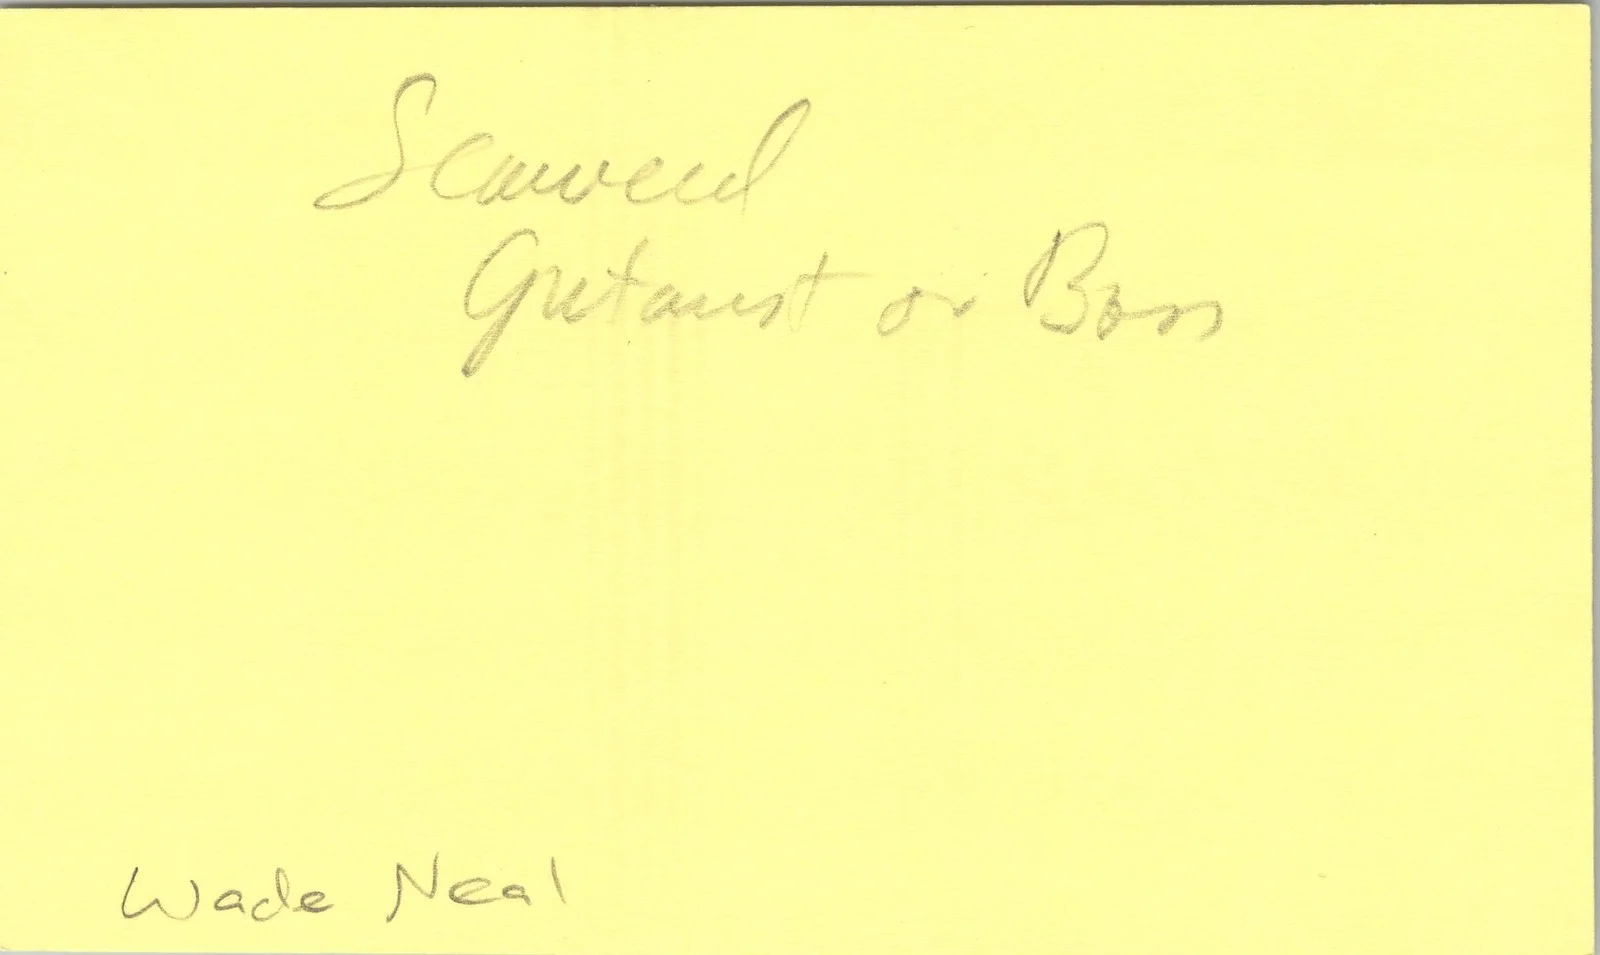 Seaweed
Guitarist or Bass
Wade Neal